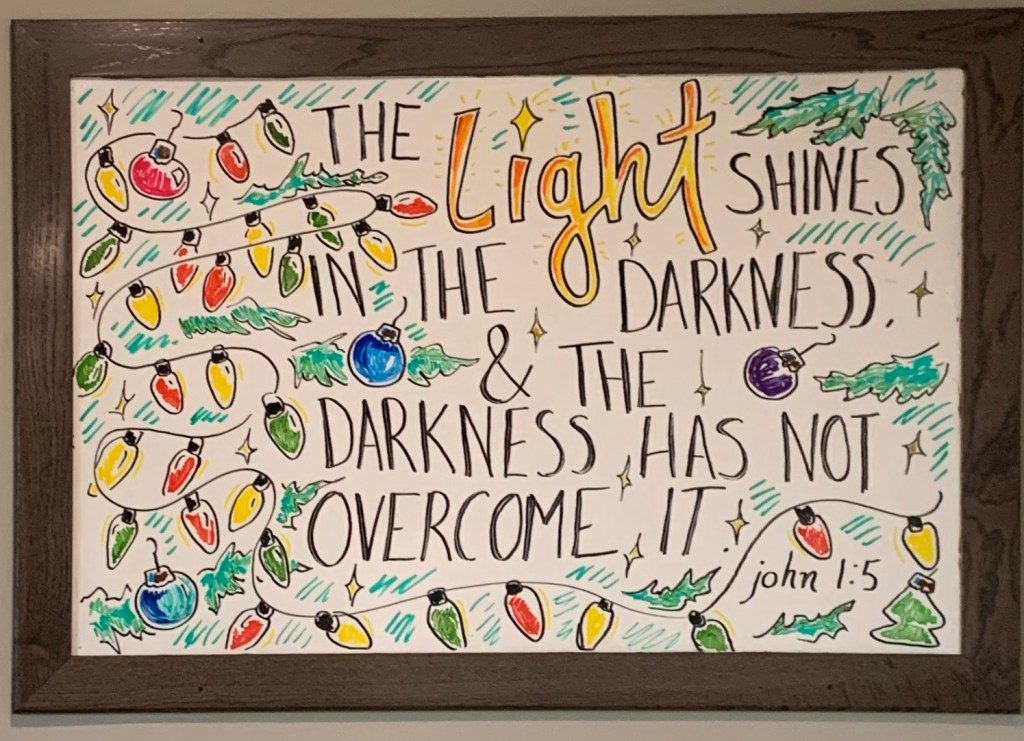 THE Light SHINES
IN THE DARKNESS.
& THE
DARKNESS HAS NOT
OVERCOME IT.
john 1:5